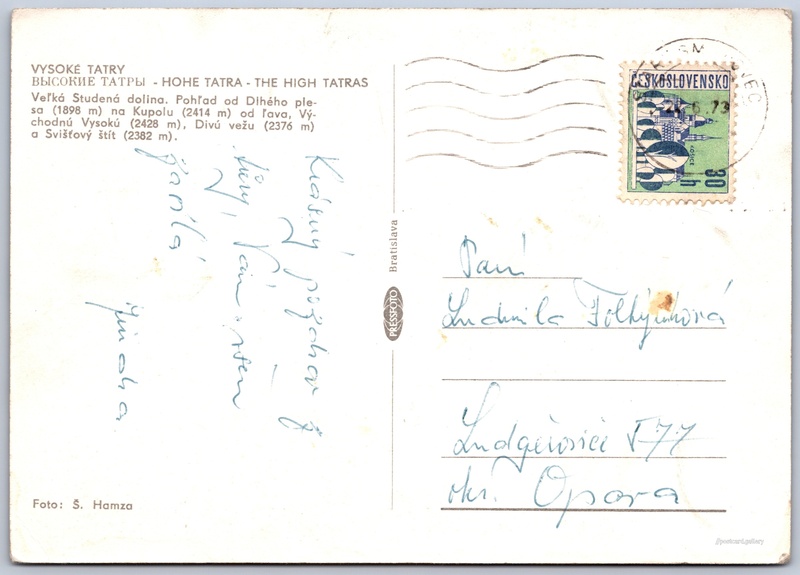 VYSOKÉ TATRY
ВЫСОКИЕ ТАТРЫ - HOHE TATRA - THE HIGH TATRAS
Veľká Studená dolina. Pohľad od Dlhého ple-
sa (1898 m) na Kupolu (2414 m) od ľava, Vý-
chodnú Vysokú (2428 m), Divú vežu (2376 m)
a Svišťový štít (2382 m).
Krásný pozdrav z
Tater Vám všem
Jarila
Jindra
Foto: Š. Hamza
Bratislava
PRESSFOTO
ČESKOSLOVENSKO
30
h
6.73
Paní
Ludmila
Ludgeřovice 577
okr. Opava
@postcard.gallery